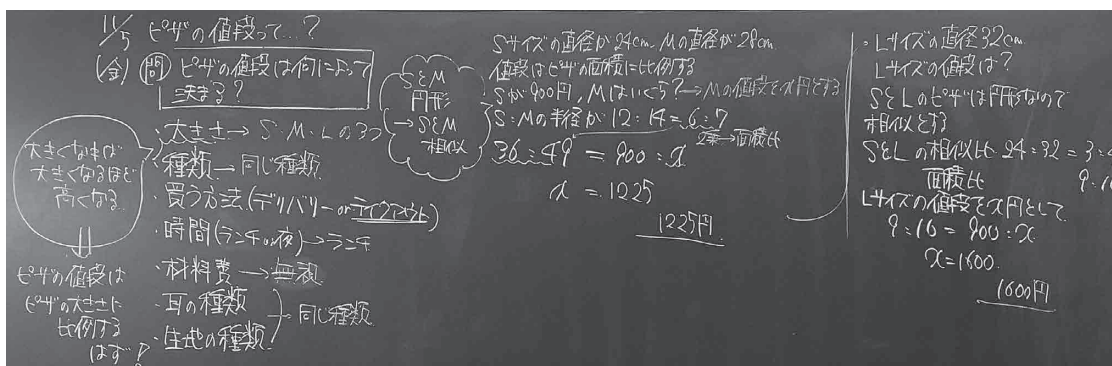 11/5 ピザの値段って…?
(金) 問 ピザの値段は何によって
決まる?
大きくなれば
大きくなるほど
高くなる
ピザの値段は
ピザの大きさに
比例する
はず!
・大きさ→S・M・Lの3つ
・種類→同じ種類
・買う方法(デリバリーorテイクアウト)
・時間(ランチor夜)→ランチ
・材料費→無視
・耳の種類
・生地の種類
→同じ種類
SとM
円形
→SとM
相似
Sサイズの直径が24cm、Mの直径が28cm
値段はピザの面積に比例する
Sが900円,Mはいくら?→Mの値段をx円とする
S:Mの半径が12:14=6:7
2乗→面積比
36:49=900:x
x=1225
1225円
・Lサイズの直径32cm
Lサイズの値段は?
SとLのピザは円形なので
相似とする
SとLの相似比 24:32=3:4
面積比 9:16
Lサイズの値段をx円として
9:16=900:x
x=1600.
1600円